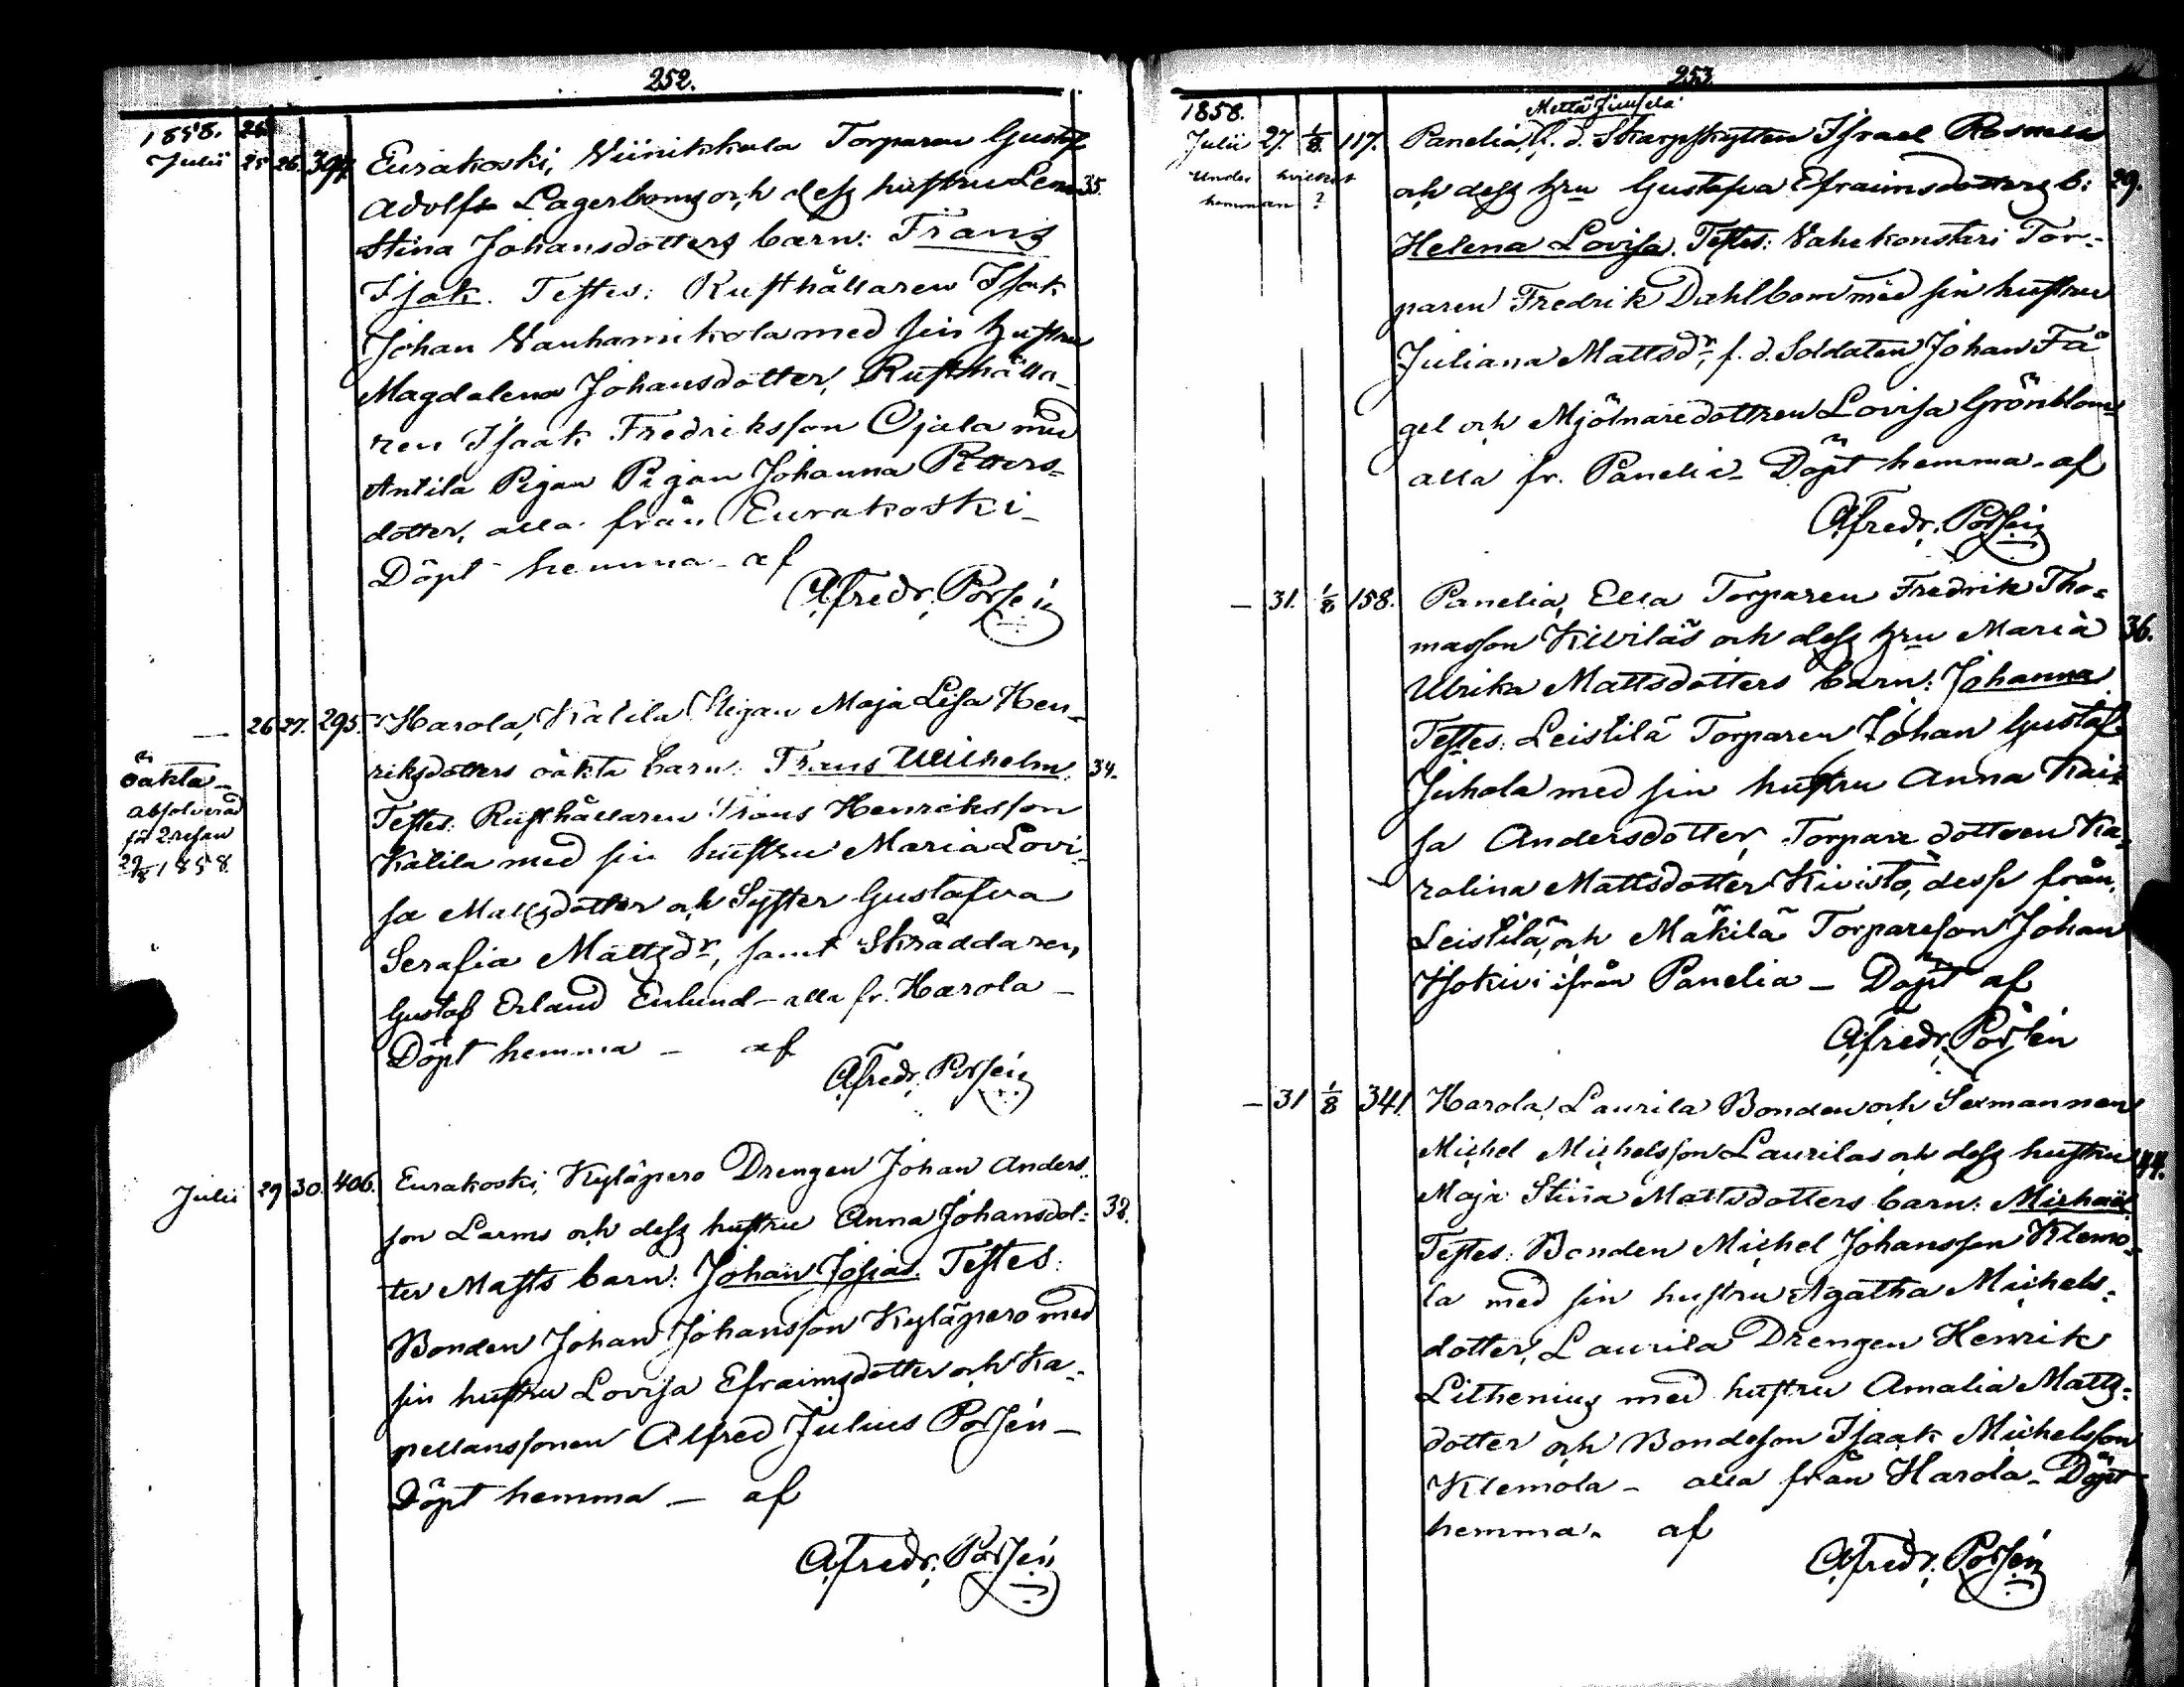 252.
1858.
Julii 25 26. 394. Eurakoski, Viinikkala Torparen Gustaf
Adolfs Lagerboms och dess hustru Lena 35.
Stina Johansdotters barn: Frans
Isak. Testes: Rusthållaren Isak
Johan Vanhamikola med sin hustru
Magdalena Johansdotter, Rusthålla-
ren Isaak Fredriksson Ojala med
Antila Pigan Pigan Johanna Petters-
dotter, alla från Eurakoski-
Döpt hemma - af
Afredr. Porsén
— 26 27. 295. Harola, Katila Pigan Maja Lisa Hen-
riksdotters oäkta barn: Frans Wilhelm. 34.
oäkta -
absolverad
för 2 resan
29/8 1858.
Testes: Rusthållaren Frans Henriksson
Katila med sin hustru Maria Lovi-
sa Mattsdotter och Syster Gustafva
Serafia Mattsdr, samt Skräddaren
Gustaf Erland Enlund - alla fr. Harola -
Döpt hemma - af
Afredr. Porsén
Julii 29 30. 406. Eurakoski, Kyläpero Drengen Johan Anders-
son Larms och dess hustru Anna Johansdot- 38.
ter Masts barn: Johan Josias. Testes:
Bonden Johan Johansson Kyläpero med
sin hustru Lovisa Efraimsdotter och Ka-
pellanssonen Alfred Julius Porsén -
Döpt hemma - af
Afredr. Porsén
253.
1858.
Julii 27. 1/8. 117. Panelia, f. d. Skarpskytten Israel Rosnells
under hvilket
hemman ?
och dess hru Gustafva Efraimsdotters b: 29.
Helena Lovisa. Testes: Vahekonstari Tor-
paren Fredrik Dahlbom med sin hustru
Juliana Mattsdr, f. d. Soldaten Johan Få-
gel och Mjölnaredottren Lovisa Grönblom
alla fr. Panelia - Döpt hemma - af
Afredr. Porsén
— 31. 1/8 158. Panelia, Ella Torparen Fredrik Tho-
masson Kiviläs och dess hru Maria 36.
Ulrika Mattsdotters barn: Johanna
Testes: Leistilä Torparen Johan Gustaf
Juhola med sin hustru Anna Kai-
sa Andersdotter, Torpare dottren Ka-
rolina Mattsdotter Kivistö, desse från
Leistilä, och Mäkilä Torpareson Johan
Isokivi ifrån Panelia - Döpt af
Afredr. Porsén
— 31 1/8 341. Harola, Laurila Bonden och Sexmannen
Michel Michelsson Laurilas och dess hustru 44.
Maja Stina Mattsdotters barn: Michaël.
Testes: Bonden Michel Johansson Klemo-
la med sin hustru Agatha Michels-
dotter, Laurila Drengen Henrik
Lithenius med hustru Amalia Matts-
dotter och Bondeson Isaak Michelsson
Klemola - alla från Harola - Döpt
hemma - af
Afredr. Porsén